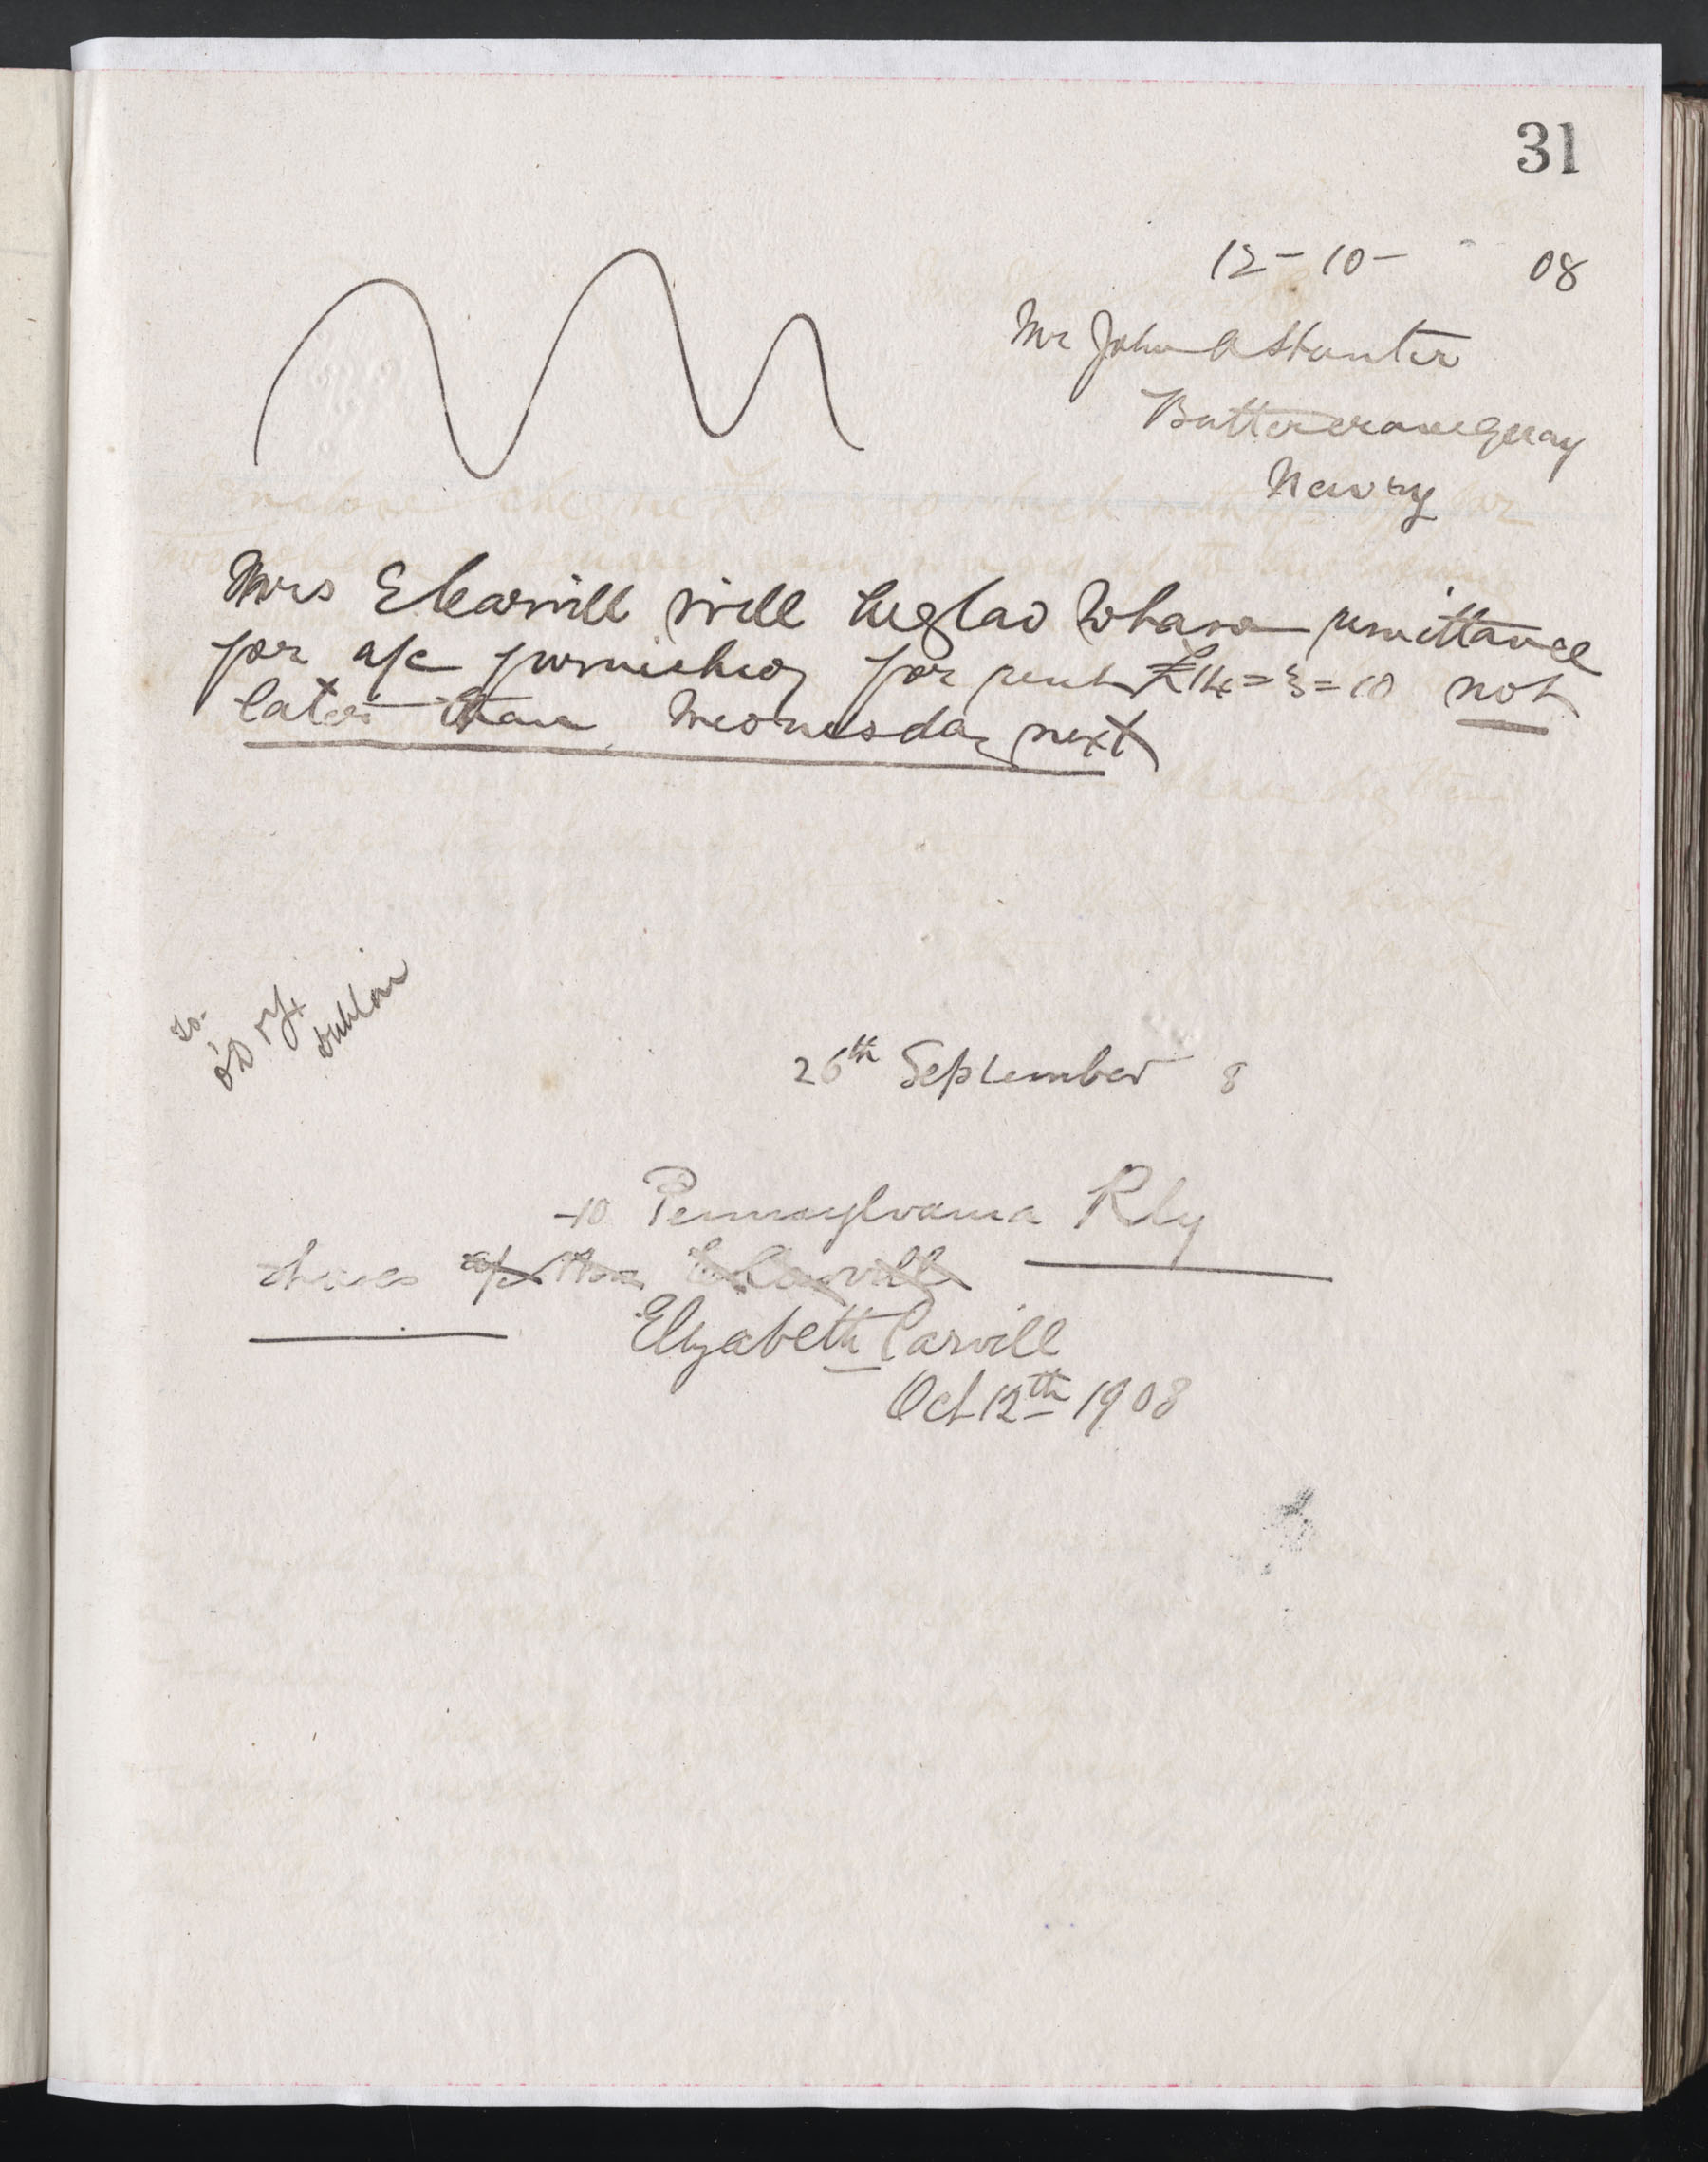 31
12-10- 08
Mr John A Hunter
Buttercrane Quay
Newry
Mrs E Carvill will be glad to have remittance
for a/c furnished for rent £14=3=10 not
later than Wednesday next
To
Dublin
26th September 8
10 Pennsylvania Rly
shares a/c Mrs E Carvill
Elizabeth Carvill
Oct 12th 1908